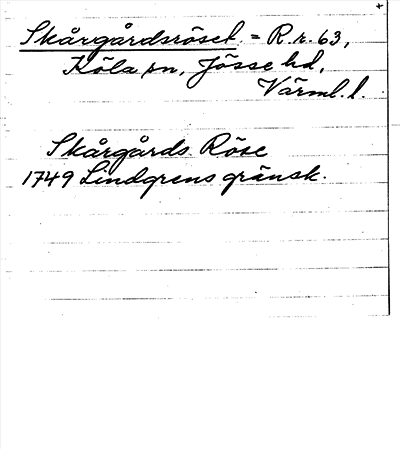 Skårgårdsröset = R.r. 63,
Köla sn, Jösse hd,
Värml. l.
Skårgårds Röse
1749 Lindgrens gränsk.